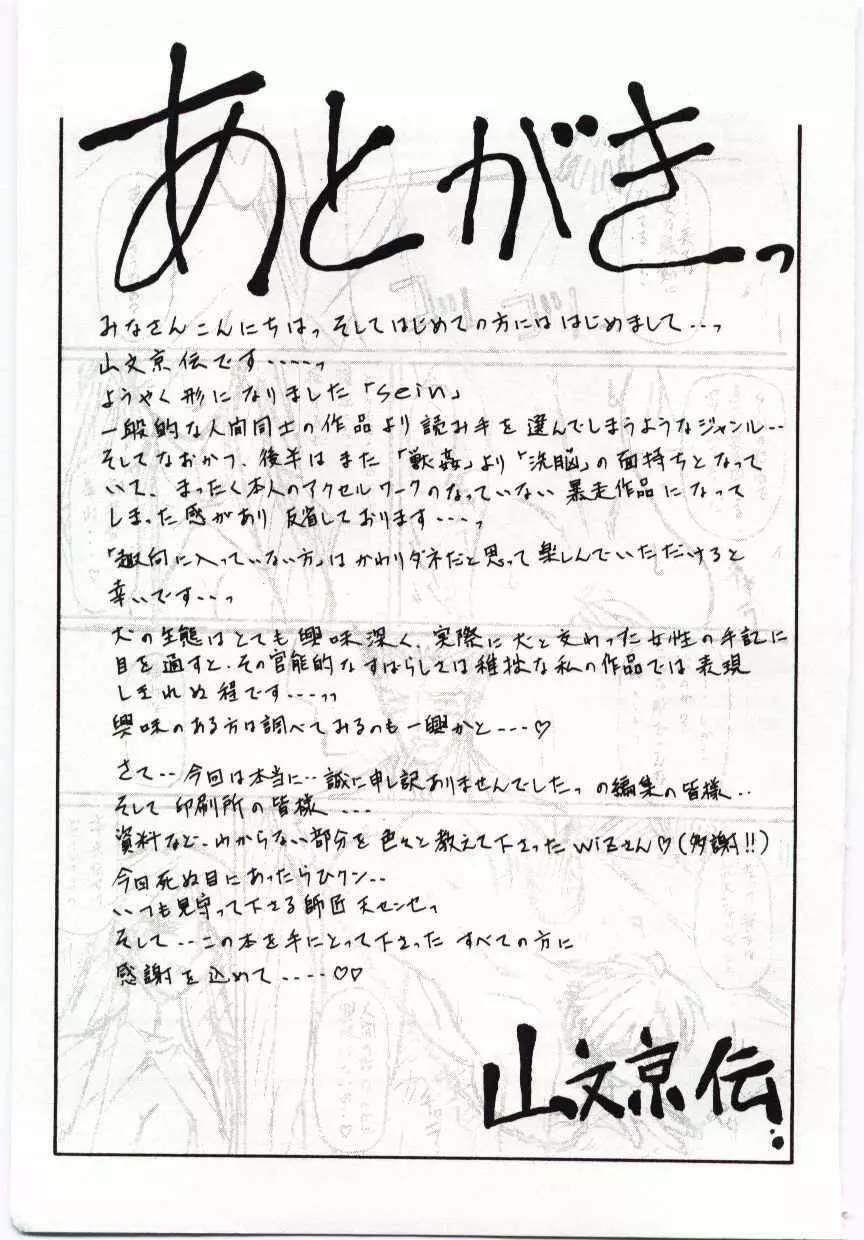 あとがきっ
みなさんこんにちはっそしてはじめての方にははじめまして…っ
山文京伝です……っ
ようやく形になりました「sein」
一般的な人間同士の作品より読み手を選んでしまうようなジャンル‥
そしてなおかつ、後半はまた「獣姦」より「洗脳」の面持ちとなって
いて、まったく本人のアクセルワークのなっていない暴走作品になって
しまった感があり反省しております……っ
「趣向に入っていない方」はかわりダネだと思って楽しんでいただけると
幸いです…っ
犬の生態はとても興味深く、実際に犬と交わった女性の手記に
目を通すと、その官能的なすばらしさは稚拙な私の作品では表現
しきれぬ程です……っっ
興味のある方は調べてみるのも一興かと…♡
さて‥今回は本当に‥誠に申し訳ありませんでしたっの編集の皆様‥
そして印刷所の皆様…
資料など、わからない部分を色々と教えて下さったwizさん♡(多謝!!)
今回死ぬ目にあったらひクン‥
いつも見守って下さる師匠天センセっ
そして‥この本を手にとって下さったすべての方に
感謝を込めて……♡♡
山文京伝